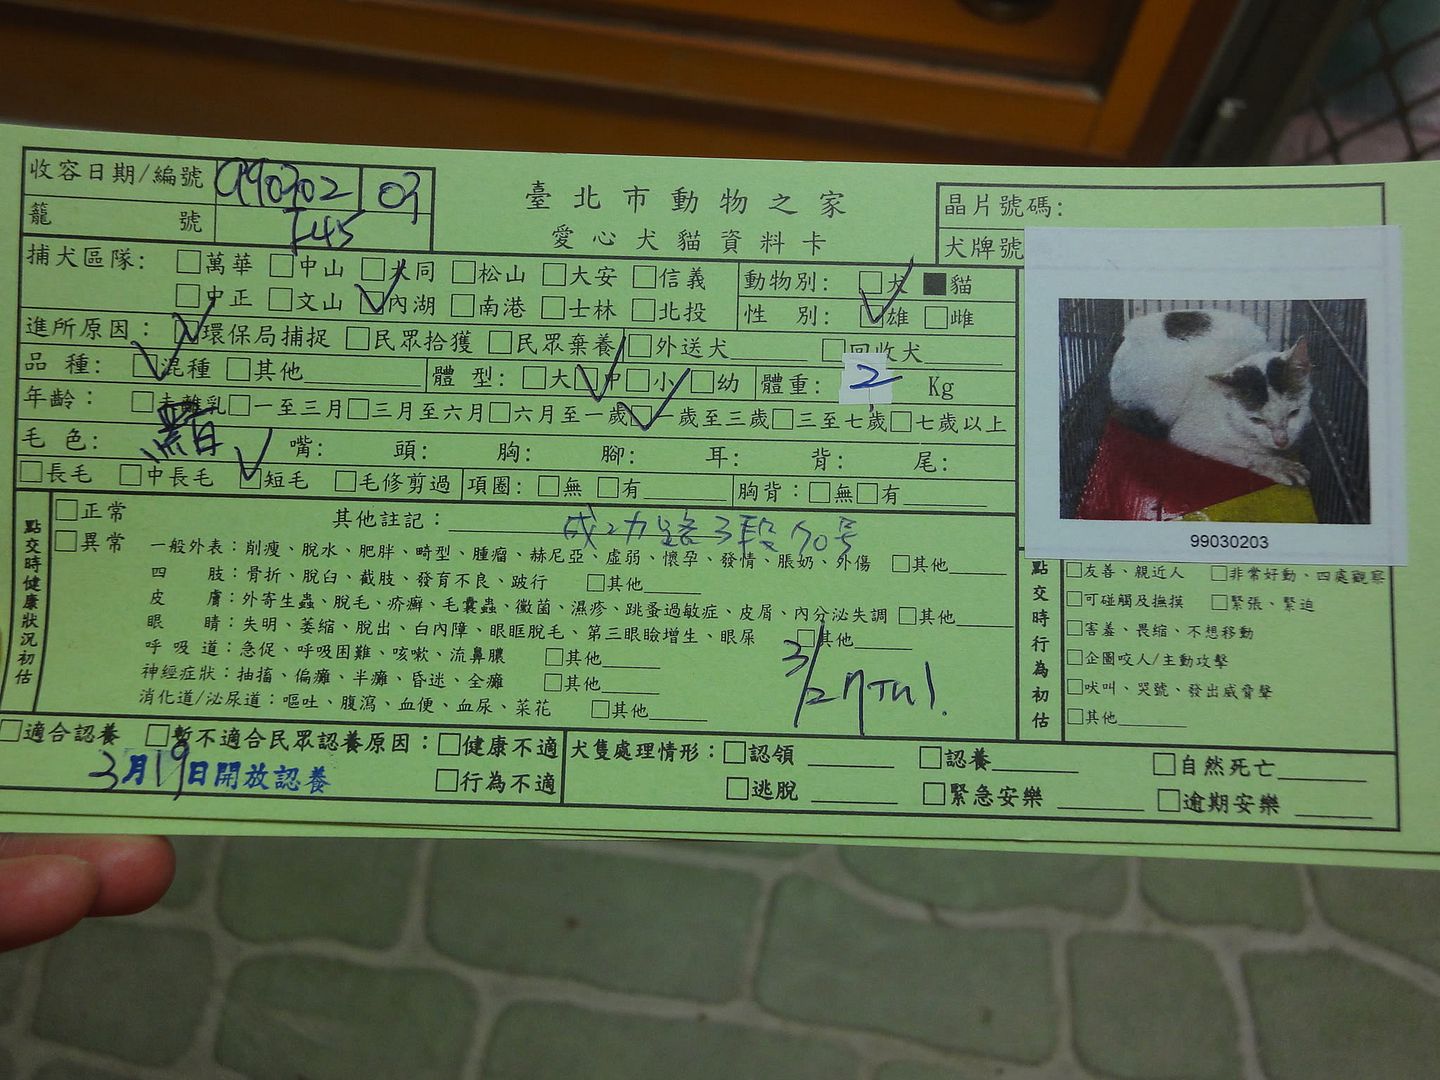 收容日期/編號 990302 03
籠 號 F45
臺北市動物之家
愛心犬貓資料卡
晶片號碼:
犬牌號
捕犬區隊: □萬華 □中山 □大同 □松山 □大安 □信義
□中正 □文山 ☑內湖 □南港 □士林 □北投
動物別: □犬 ■貓
性 別: ☑雄 □雌
進所原因: ☑環保局捕捉 □民眾拾獲 □民眾棄養 □外送犬______ □回收犬______
品 種: ☑混種 □其他______ 體 型: □大 ☑中 □小 □幼 體重: 2 Kg
年齡: □未離乳 □一至三月 □三月至六月 □六月至一歲 ☑一歲至三歲 □三至七歲 □七歲以上
毛 色: 黑白 嘴: 頭: 胸: 腳: 耳: 背: 尾:
□長毛 □中長毛 ☑短毛 □毛修剪過 項圈: □無 □有______ 胸背: □無 □有______
99030203
點交時健康狀況初估
□正常
□異常
其他註記: 成功路3段70号
一般外表:削瘦、脫水、肥胖、畸型、腫瘤、赫尼亞、虛弱、懷孕、發情、脹奶、外傷 □其他______
四 肢:骨折、脫臼、截肢、發育不良、跛行 □其他______
皮 膚:外寄生蟲、脫毛、疥癬、毛囊蟲、黴菌、濕疹、跳蚤過敏症、皮屑、內分泌失調 □其他______
眼 睛:失明、萎縮、脫出、白內障、眼眶脫毛、第三眼瞼增生、眼屎 □其他______
呼 吸 道:急促、呼吸困難、咳嗽、流鼻膿 □其他______
神經症狀:抽搐、偏癱、半癱、昏迷、全癱 □其他______
消化道/泌尿道:嘔吐、腹瀉、血便、血尿、菜花 □其他______
3/2
點交時行為初估
□友善、親近人 □非常好動、四處觀察
□可碰觸及撫摸 □緊張、緊迫
□害羞、畏縮、不想移動
□企圖咬人/主動攻擊
□吠叫、哭號、發出威脅聲
□其他______
□適合認養 □暫不適合民眾認養原因: □健康不適
□行為不適
3月19日開放認養
犬隻處理情形: □認領 ______ □認養______ □自然死亡______
□逃脫 ______ □緊急安樂 ______ □逾期安樂 ______